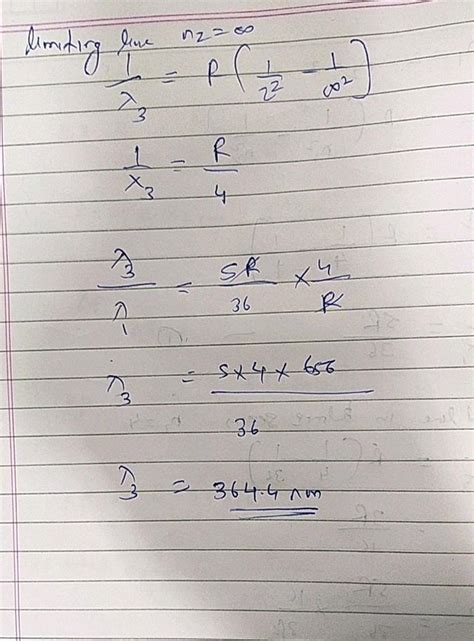 limiting line n₂ = ∞
1/λ₃ = R (1/2² - 1/∞²)
1/λ₃ = R/4
λ₃/λ₁ = 5R/36 × 4/R
λ₃ = 5×4×656/36
λ₃ = 364.4 nm